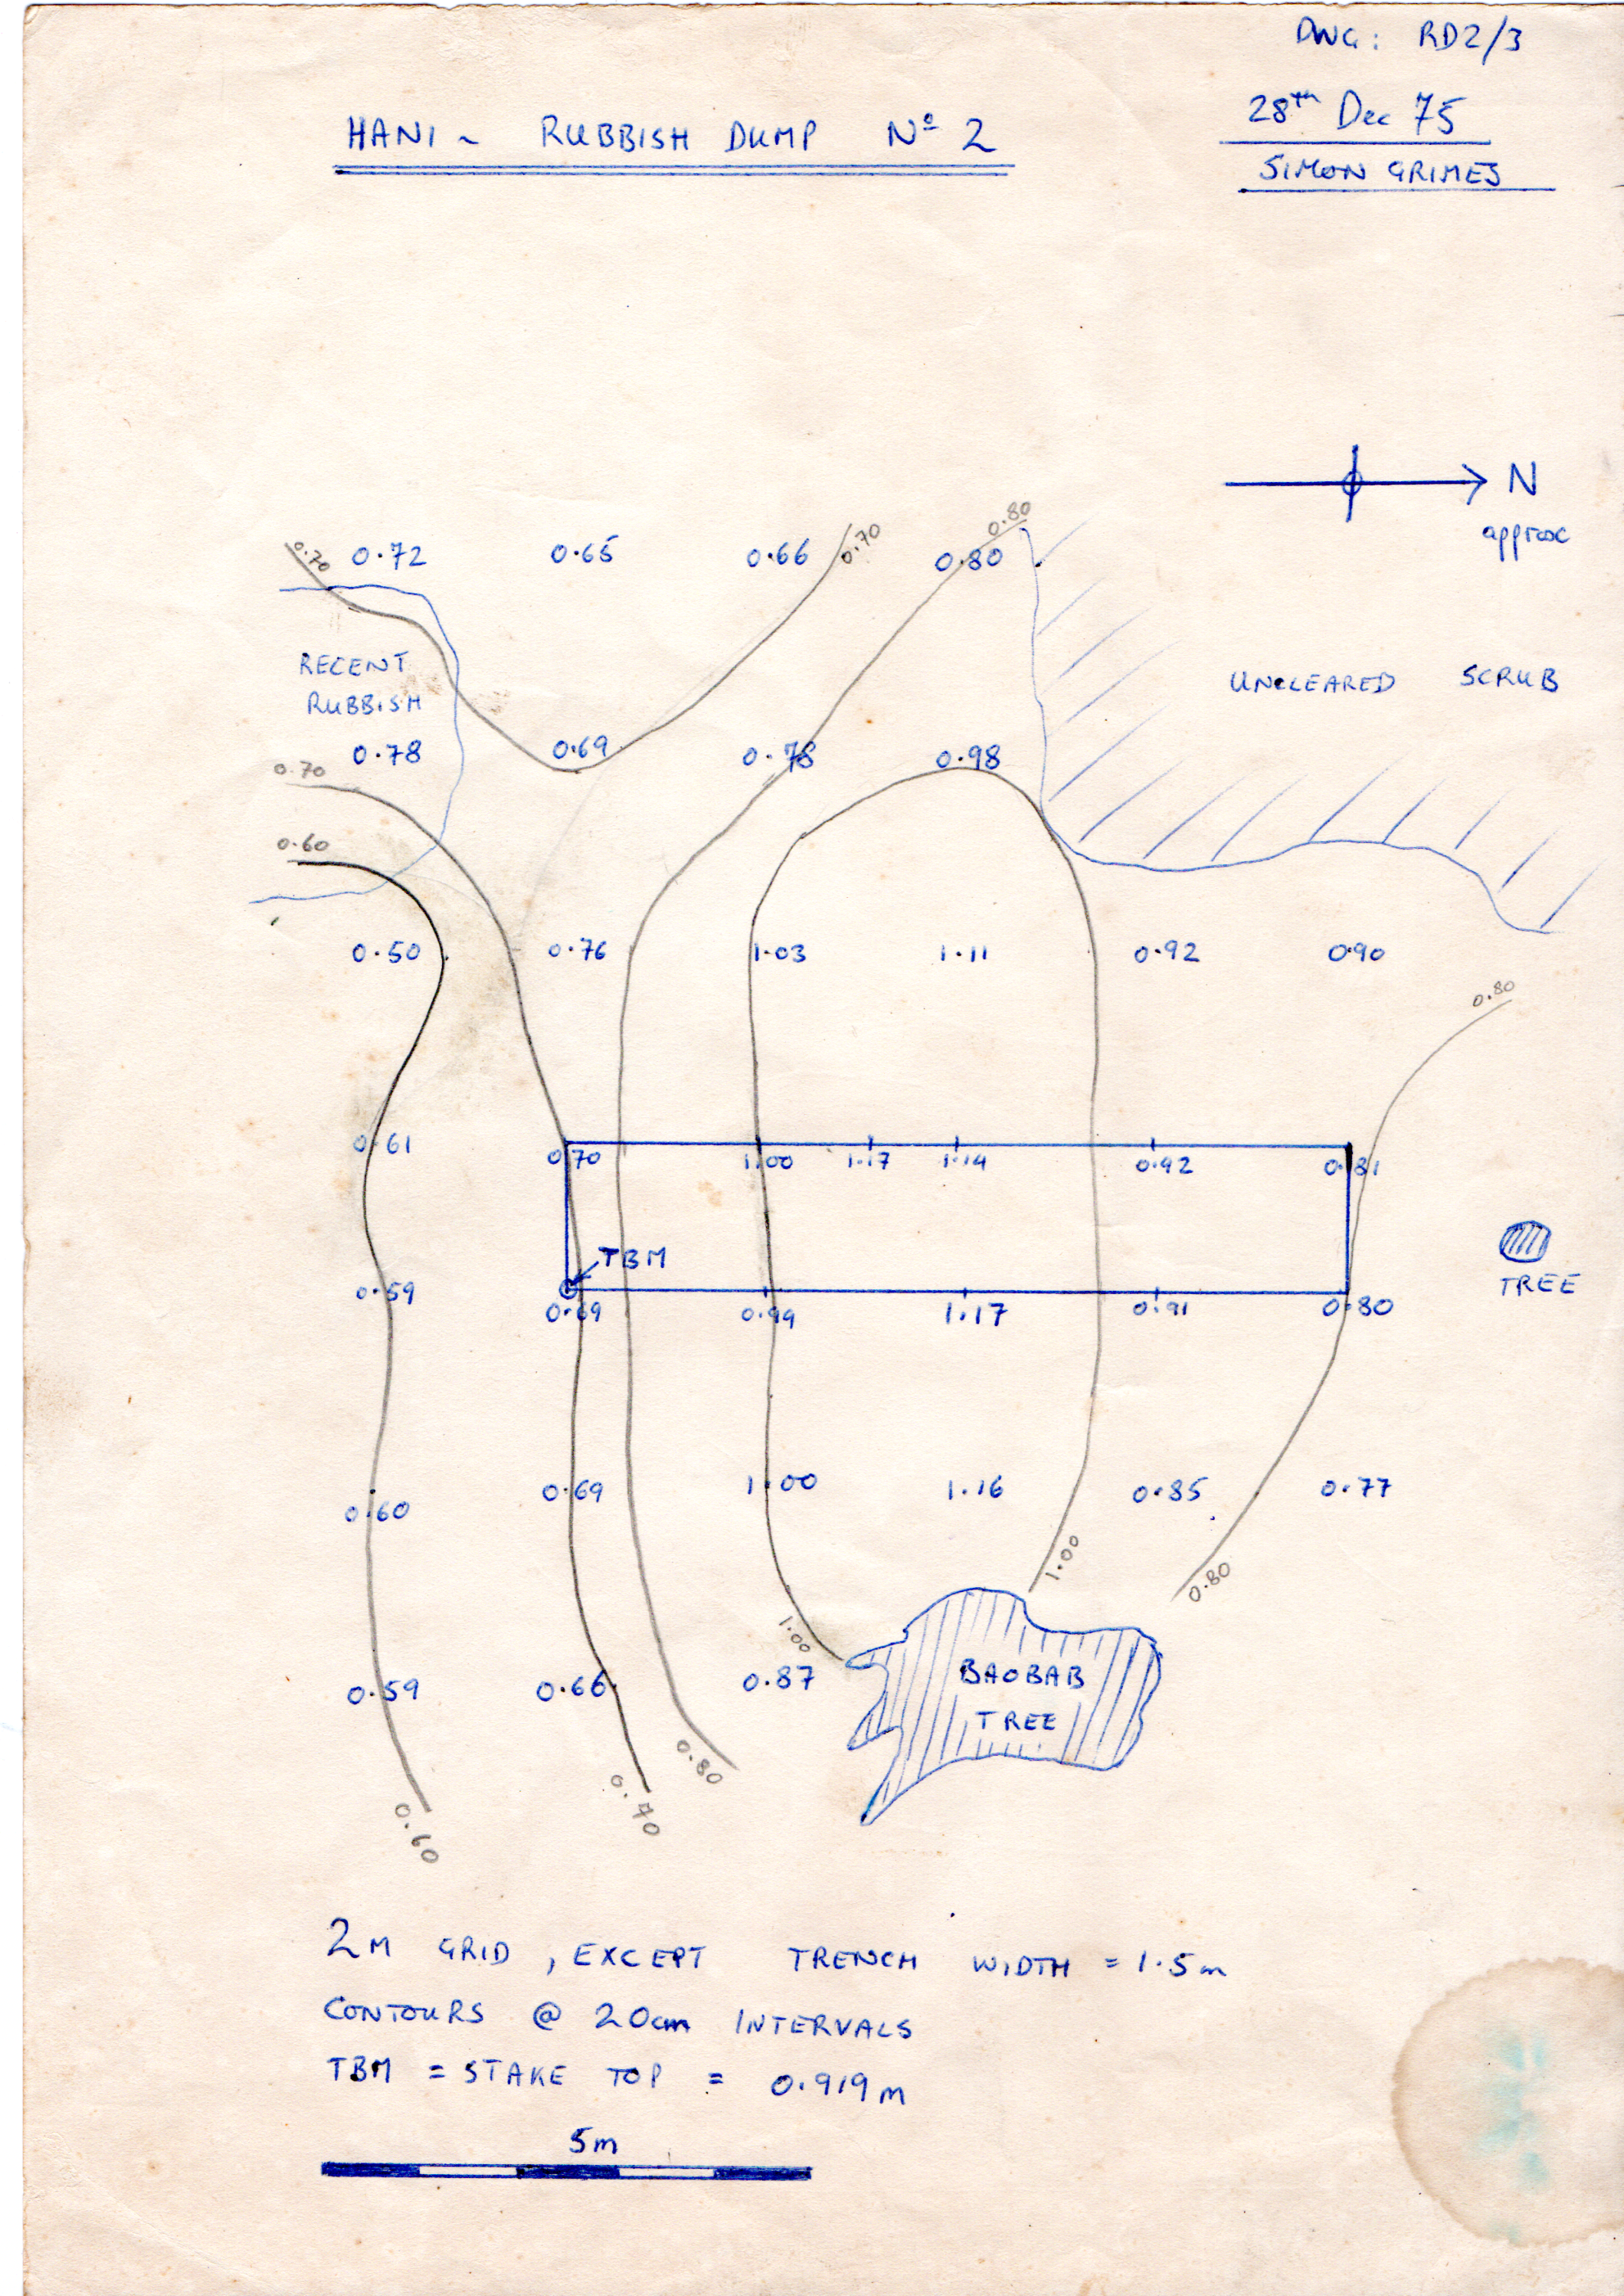 DWG: RD2/3
28th Dec 75
SIMON GRIMES
HANI ~ RUBBISH DUMP Nº 2
N
approx
0.70 0.72 0.65 0.66 0.70 0.80 0.80
RECENT
RUBBISH
UNCLEARED SCRUB
0.78 0.69 0.78 0.98
0.70
0.60
0.50 0.76 1.03 1.11 0.92 0.90
0.80
0.61 0.70 1.00 1.17 1.14 0.92 0.81
TBM
TREE
0.59 0.69 0.99 1.17 0.91 0.80
0.60 0.69 1.00 1.16 0.85 0.77
1.00
0.80
1.00
0.59 0.66 0.87
BAOBAB
TREE
0.80
0.70
0.60
2M GRID, EXCEPT TRENCH WIDTH = 1.5m
CONTOURS @ 20cm INTERVALS
TBM = STAKE TOP = 0.919m
5m